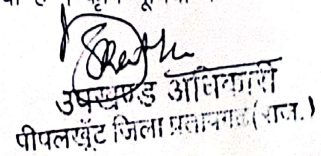 उपखण्ड अधिकारी
पीपलखूँट जिला प्रतापगढ़ (राज.)